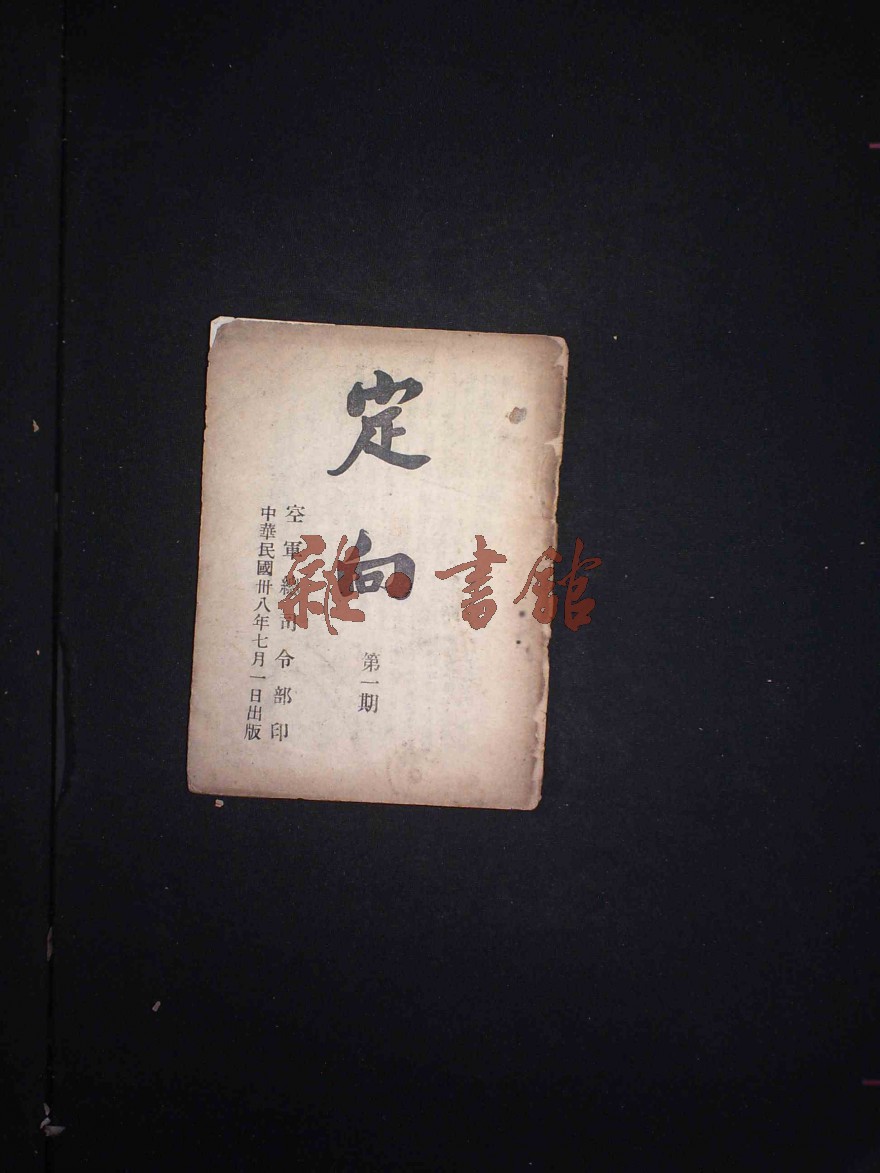 定向
第一期
空軍總司令部印
中華民國卅八年七月一日出版
雜·書館